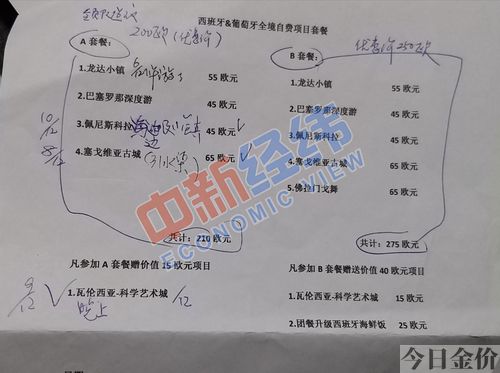 西班牙&葡萄牙全境自费项目套餐
200欧(优惠价)
A 套餐：
1.龙达小镇 55 欧元
2.巴塞罗那深度游 45 欧元
3.佩尼斯科拉 45 欧元 √
10/12
4.塞戈维亚古城 (引水渠) 65 欧元 √
8/12
共计：210 欧元
凡参加 A 套餐赠价值 15 欧元项目
9/12 √
1.瓦伦西亚-科学艺术城 /12
晚上
B 套餐：
优惠价 250欧
1.龙达小镇 55 欧元
2.巴塞罗那深度游 45 欧元
3.佩尼斯科拉 45 欧元
4.塞戈维亚古城 65 欧元
5.佛拉门戈舞 65 欧元
共计：275 欧元
凡参加 B 套餐赠送价值 40 欧元项目
1.瓦伦西亚-科学艺术城 15 欧元
2.团餐升级西班牙海鲜饭 25 欧元
中新经纬
ECONOMIC VIEW
今日金价